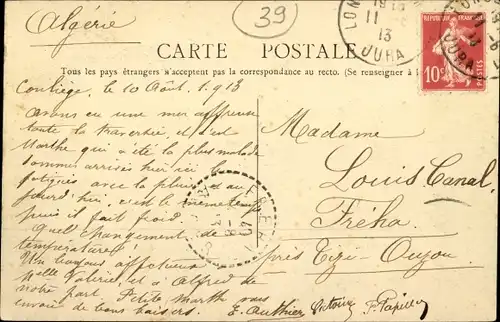 Algérie
39
CARTE POSTALE
Tous les pays étrangers n'acceptent pas la correspondance au recto. (Se renseigner à l
LON
11
13
JURA
RÉPUBLIQUE FRANÇAISE
10c
POSTES
JURA
Conliège, le 10 Août 1913
avons eu une mer affreuse
toute la traversée, et c'est
Marthe qui a été la plus malade
sommes arrivés hier ici
fatigués avec la pluie et au
jourd'hui, c'est le même temps
puis il fait froid.
Quel changement de
température!
Un baiser affectueux
Valérie, et à Alfred de
notre part. Petite Marthe vous
envoie de bons baisers.
E. Authier Victoire F. Papillon
Madame
Louis Canal,
Fréha
près Tizi-Ouzou